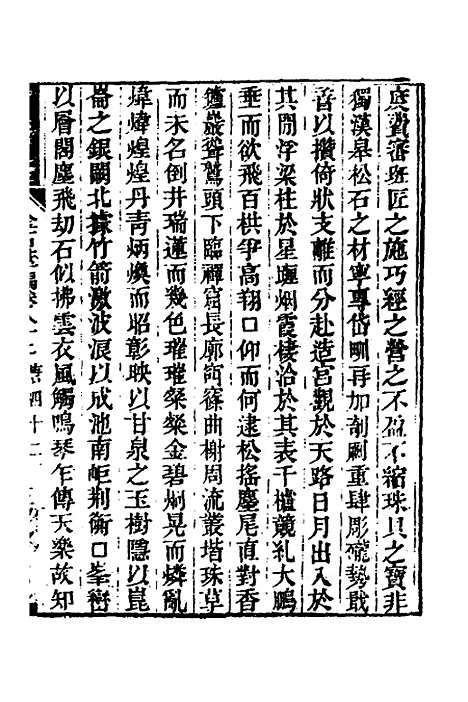 度資審班匠之施巧經之營之不盈不縮珠具之寶非
獨漢皋松石之材寧專岱畎再加剞劂重肆彫礲勢戢
香以攢倚狀支離而分赴造宮觀於天路日月出入於
其間浮梁柱於星躔烟霞棲洽於其表千櫨競糺大鵬
垂而欲飛百栱爭高翔口仰而何逮松搖麈尾直對香
爐巖聳鷲頭下臨禪窟長廓窈篠曲榭周流叢堦珠草
而未名倒井瑞蓮而幾色璀璀粲粲金碧炯晃而燐亂
煒煒煌煌丹靑炳煥而昭彰映以甘泉之玉樹隱以崑
崙之銀闕北據竹箭激波浪以成池南岠荆衡口峯巒
以層閣塵飛劫石似拂雲衣風觸鳴琴乍傳天樂故知